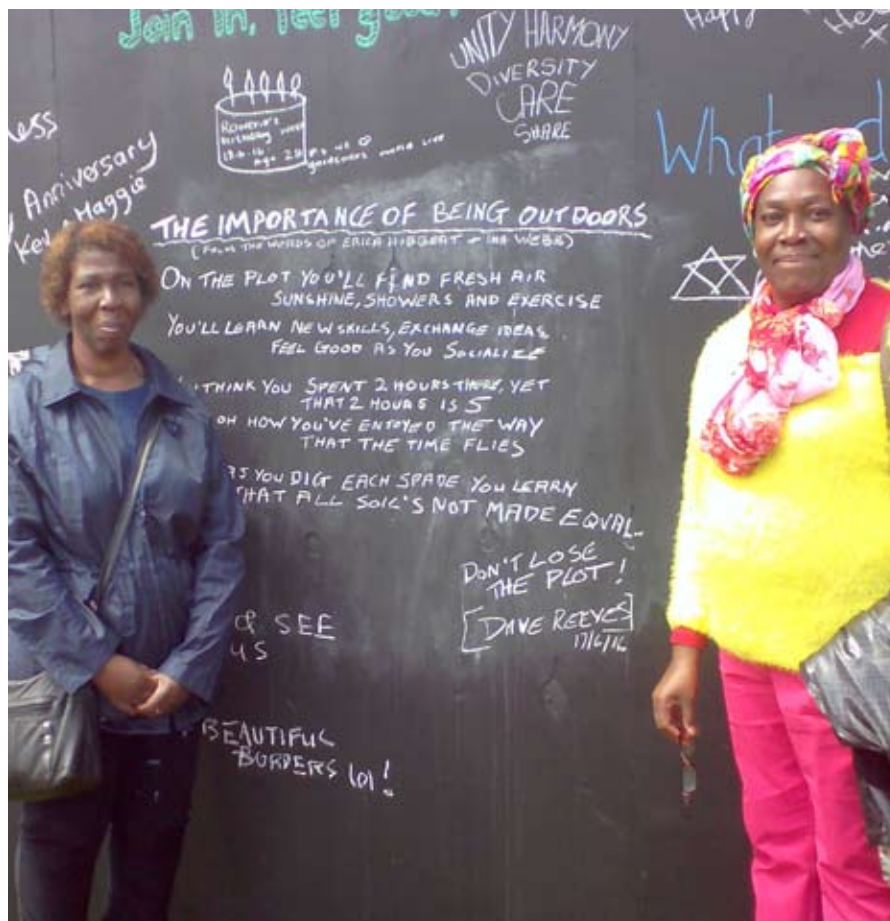 Join in, feel good!
UNITY HARMONY
DIVERSITY
CARE
SHARE
Happy
birthday
Age
gardeners world live
Anniversary
Kev & Maggie
What
THE IMPORTANCE OF BEING OUTDOORS
(FROM THE WORDS OF ERICA HIBBERT + INA WEBB)
ON THE PLOT YOU'LL FIND FRESH AIR
SUNSHINE, SHOWERS AND EXERCISE
YOU'LL LEARN NEW SKILLS, EXCHANGE IDEAS
FEEL GOOD AS YOU SOCIALIZE
THINK YOU SPENT 2 HOURS THERE, YET
THAT 2 HOURS IS 5
OH HOW YOU'VE ENJOYED THE WAY
THAT THE TIME FLIES
AS YOU DIG EACH SPADE YOU LEARN
THAT ALL SOIL'S NOT MADE EQUAL
DON'T LOSE
THE PLOT!
[DAVE REEVES]
17/6/16
& SEE
US
BEAUTIFUL
BORDERS lol!